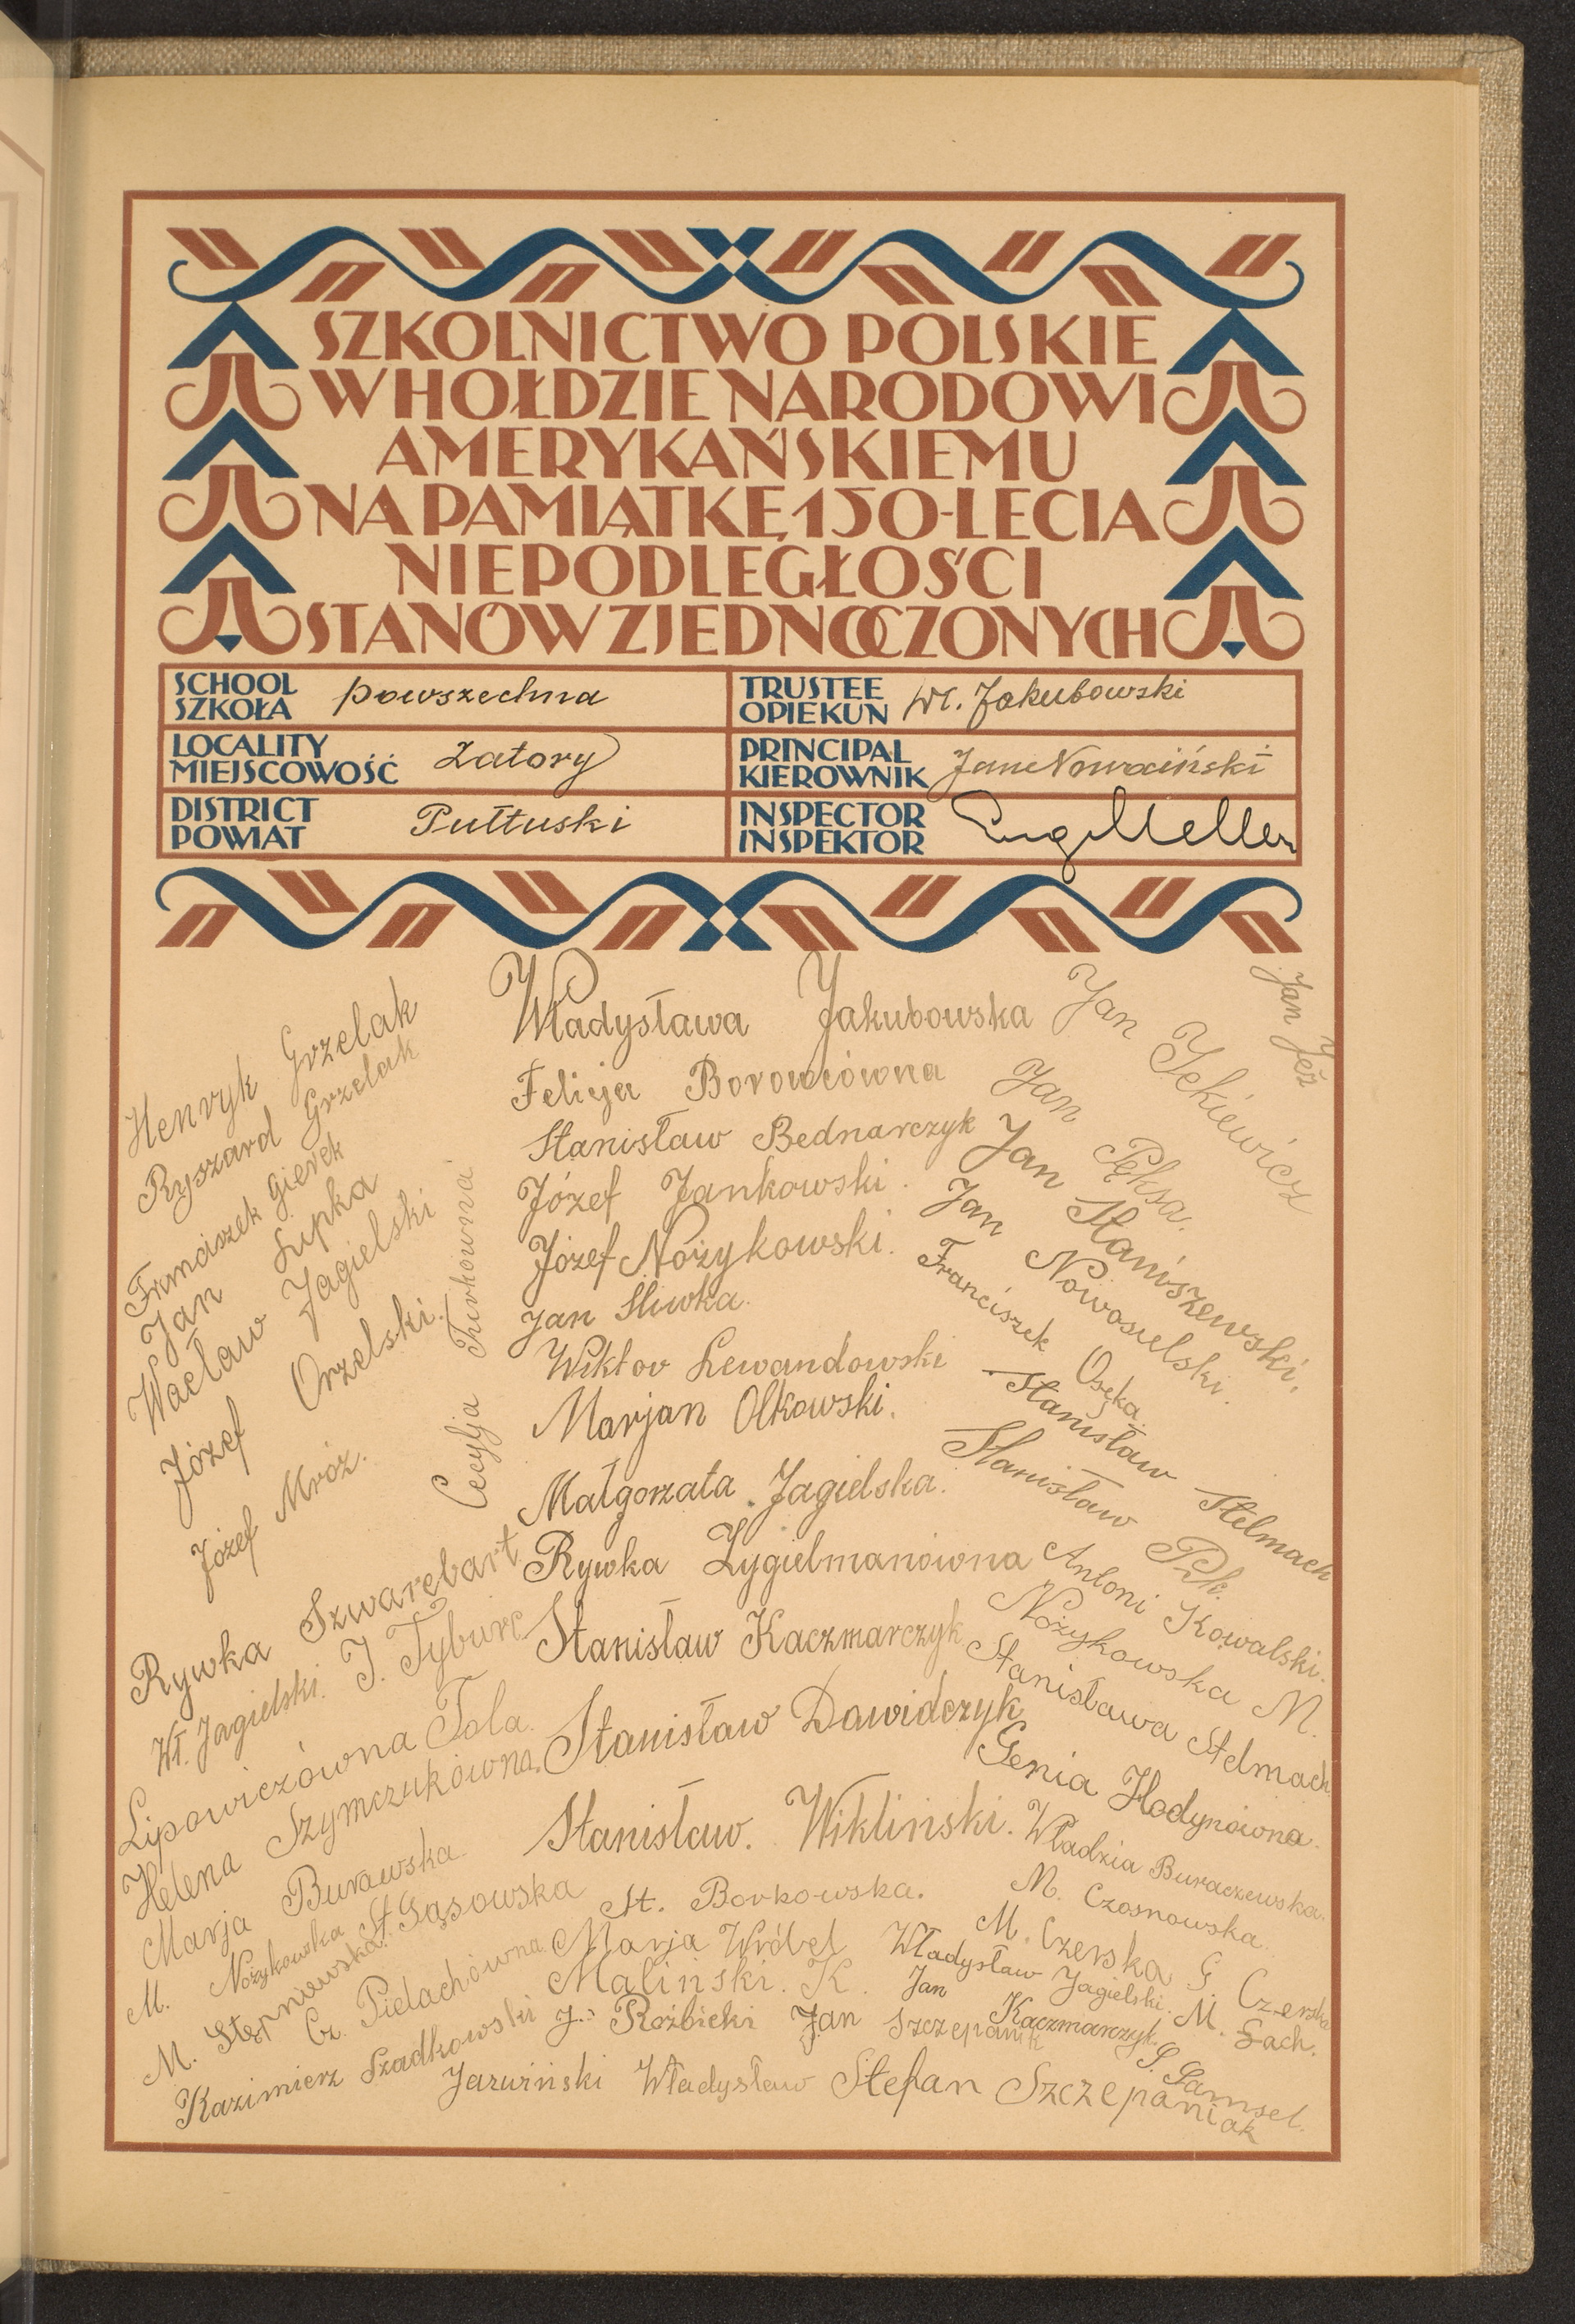 SZKOLNICTWO POLSKIE
W HOŁDZIE NARODOWI
AMERYKAŃSKIEMU
NA PAMIĄTKĘ 150-LECIA
NIEPODLEGŁOŚCI
STANÓW ZJEDNOCZONYCH
SCHOOL
SZKOŁA
powszechna
TRUSTEE
OPIEKUN
Wł. Jakubowski
LOCALITY
MIEJSCOWOŚĆ
Zatory
PRINCIPAL
KIEROWNIK
Jan Nowaiński
DISTRICT
POWIAT
Pułtuski
INSPECTOR
INSPEKTOR
Henryk Grzelak
Ryszard Grzelak
Franciszek Gierek
Jan Łupka
Wacław Jagielski
Józef Orzelski.
Józef Mróz.
Cecylja Turkowna
Rywka Szwarcbart
Wł. Jagielski.
J. Tyburc
Lipowiczówna Tola.
Helena Szymczukówna.
Marja Burawska.
M. Nożykowska
St. Gąsowska
M. Stępnowska.
Cz. Pielachówna.
Kazimierz Szadkowski
Władysława Jakubowska
Felicja Borowcówna
Stanisław Bednarczyk
Józef Jankowski.
Józef Nożykowski.
Jan Śliwka.
Wiktor Lewandowski
Marjan Olkowski.
Małgorzata Jagielska.
Rywka Zygielmanówna
Stanisław Kaczmarczyk
Stanisław Dawidczyk
Stanisław. Wikliński.
St. Borkowska.
Marja Wróbel
Maliński. K.
J. Rozbicki
Jan Szczepanik
Jarwiński Władysław
Stefan Szczepaniak
Jan Jeż
Jan Jekiewicz
Jan Pęksa.
Jan Staniszewski.
Jan Nowosielski.
Franciszek Osęka.
Stanisław Stelmach
Stanisław Pyk.
Antoni Kowalski.
Nożykowska M.
Stanisława Stelmach
Genia Hodynówna.
Władzia Buraczewska.
M. Czosnowska.
M. Czerska
G. Czerska
Władysław Jagielski.
M. Gach.
Jan Kaczmarczyk.
S. Samsel.